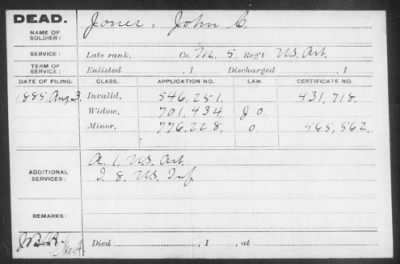 DEAD.
NAME OF SOLDIER: Jones, John C.
SERVICE: Late rank, Co. M, 5 Reg't U.S. Art.
TERM OF SERVICE: Enlisted , 1 Discharged , 1
DATE OF FILING. CLASS. APPLICATION NO. LAW. CERTIFICATE NO.
1885 Aug 3. Invalid, 546,251. 431,718.
Widow, 701,434
Minor, 776,228.
ADDITIONAL SERVICES: A. 1, U.S. Art.
I. 8. U.S. Inf
REMARKS:
Died , 1 , at